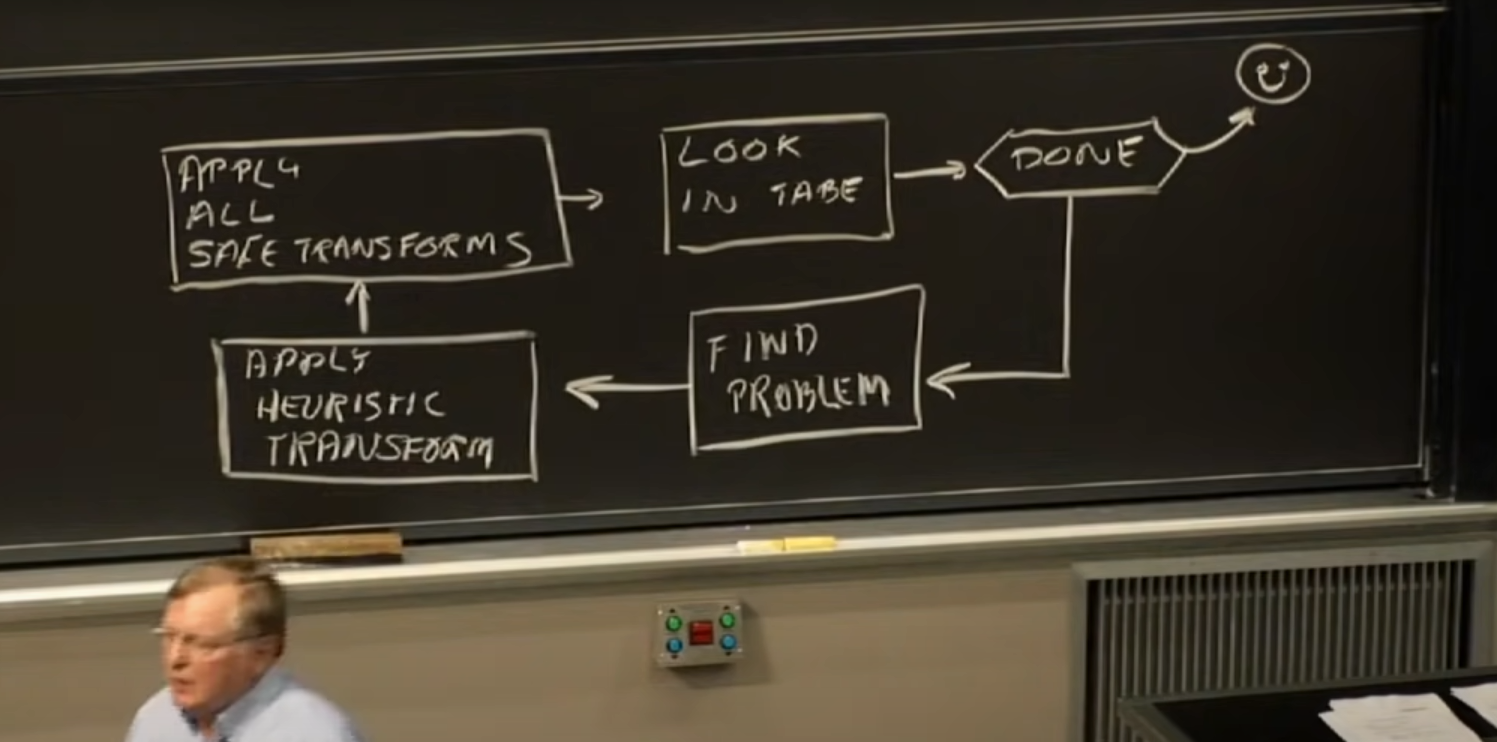 APPLY
ALL
SAFE TRANSFORMS
LOOK
IN TABE
DONE
FIND
PROBLEM
APPLY
HEURISTIC
TRANSFORM